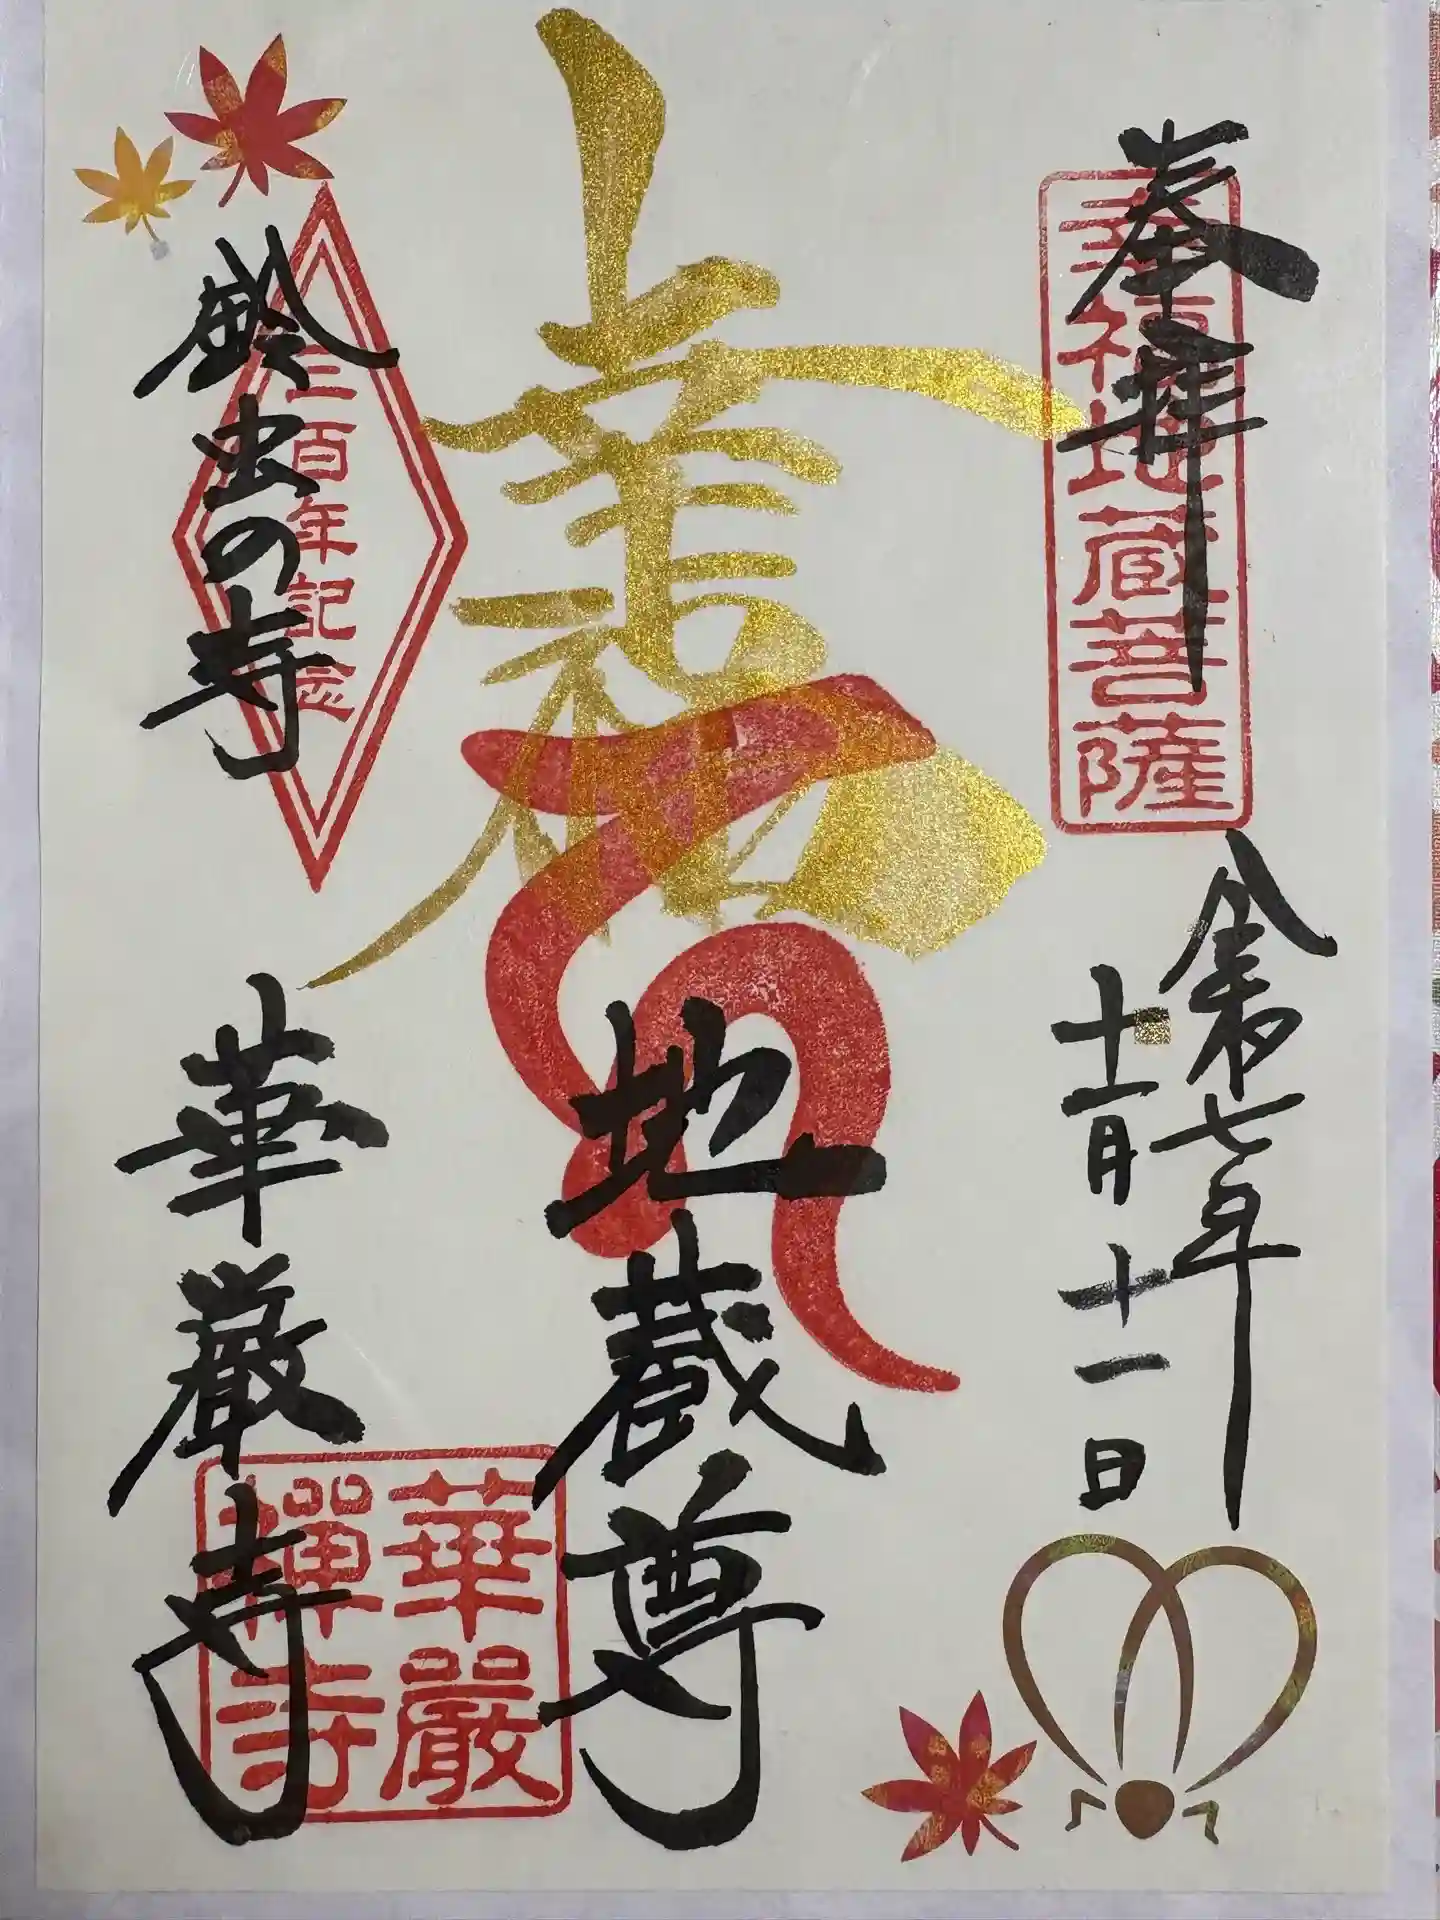 奉拝
幸福地蔵菩薩
令和七年
十一月十一日
幸福
地蔵尊
鈴虫の寺
三百年記念
華厳寺
華嚴
禅寺